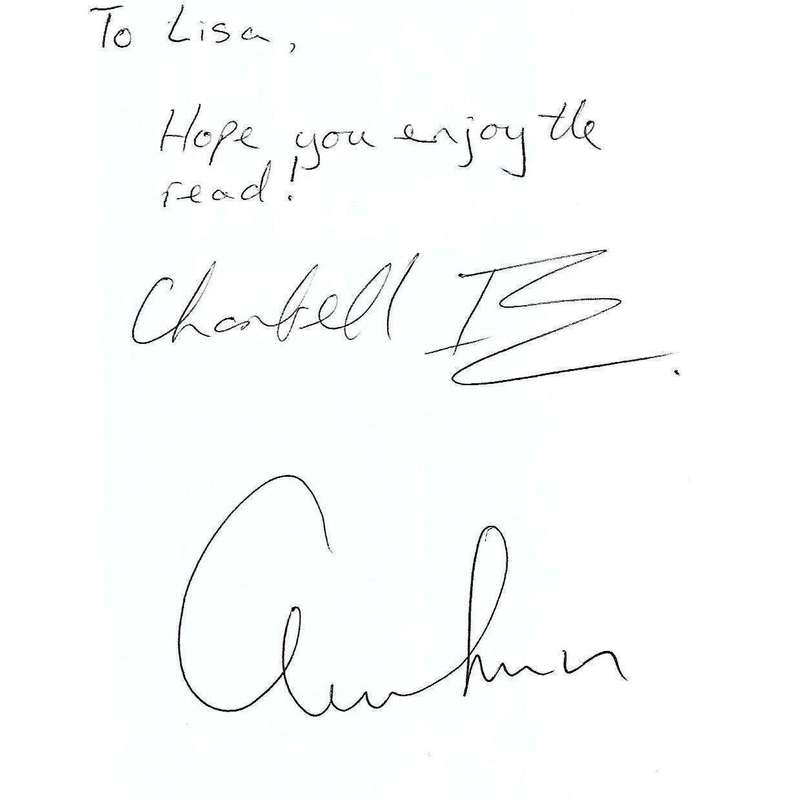 To Lisa,
Hope you enjoy the
read!
Chantell